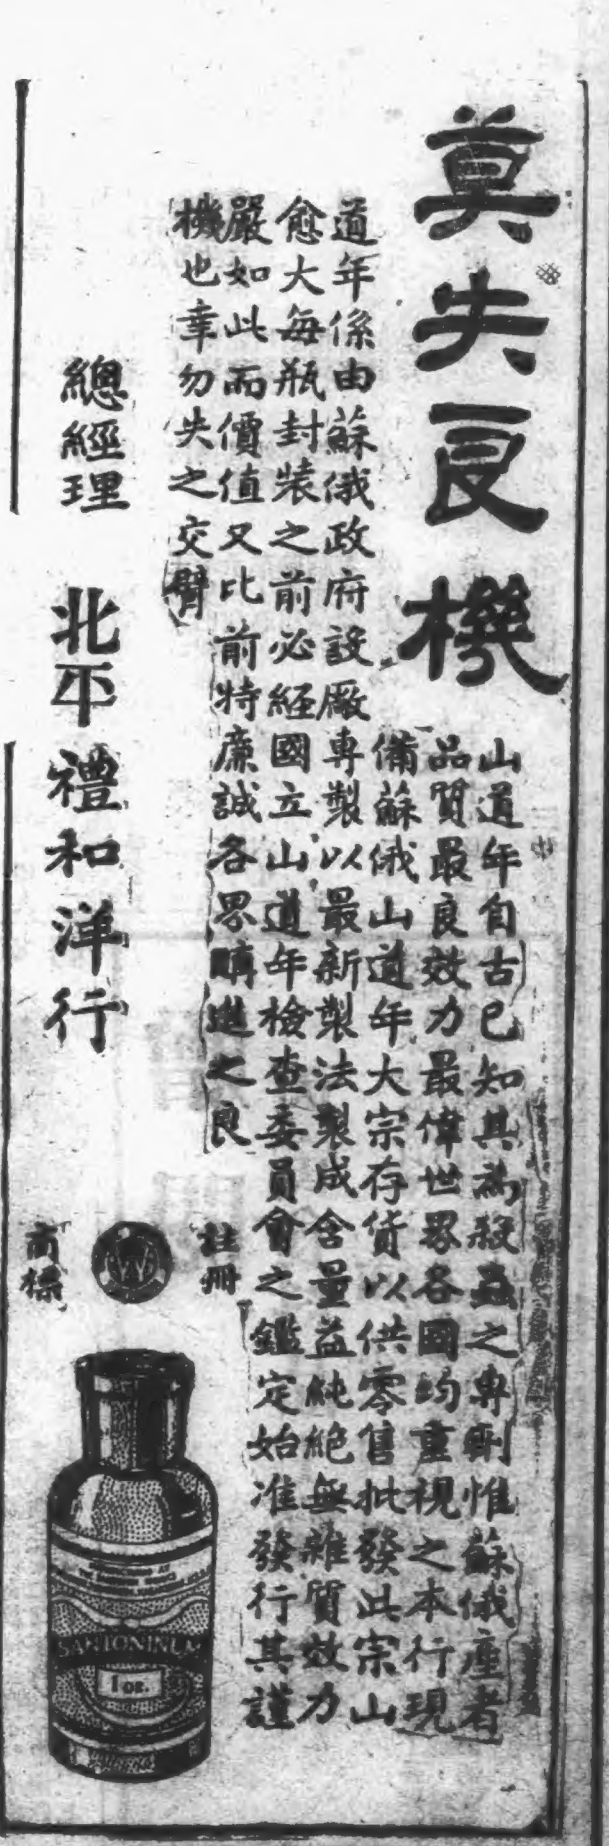 莫失良機
山道年自古已知其為殺蟲之專劑惟蘇俄產者
品質最良效力最偉世界各國均重視之本行現
備蘇俄山道年大宗存貨以供零售批發此宗山
道年係由蘇俄政府設廠專製以最新製法製成含量益純絕無雜質效力
愈大每瓶封裝之前必經國立山道年檢查委員會之鑑定始准發行其謹
嚴如此而價值又比前特廉誠各界購進之良
機也幸勿失之交臂
總經理 北平禮和洋行
註冊
商標
SANTONINUM
1 oz.